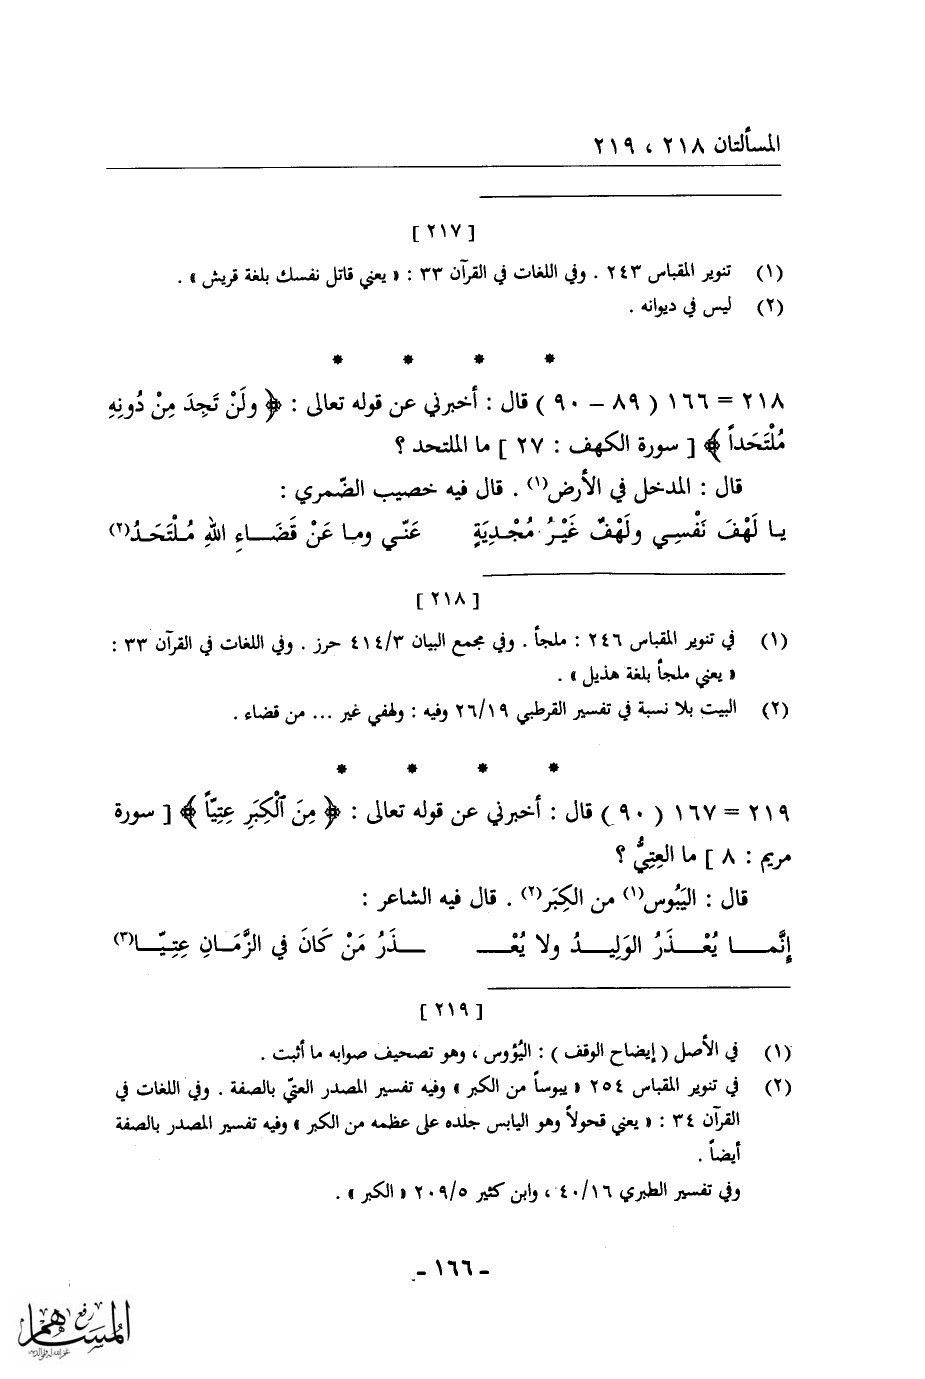 المسألتان ٢١٨ ، ٢١٩
[ ٢١٧ ]
(١) تنوير المقباس ٢٤٣ . وفي اللغات في القرآن ٣٣ : « يعني قاتل نفسك بلغة قريش » .
(٢) ليس في ديوانه .
* * * *
٢١٨ = ١٦٦ ( ٨٩ – ٩٠ ) قال : أخبرني عن قوله تعالى : ﴿ ولَنْ تَجِدَ مِنْ دُونِهِ
مُلْتَحَداً ﴾ [ سورة الكهف : ٢٧ ] ما الملتحد ؟
قال : المدخل في الأرض(١) . قال فيه خصيب الضّمري :
يا لَهْفَ نَفْسِي ولَهْفٌ غَيْرُ مُجْدِيَةٍ عَنّي وما عَنْ قَضَاءِ اللهِ مُلْتَحَدُ(٢)
[ ٢١٨ ]
(١) في تنوير المقباس ٢٤٦ : ملجأ . وفي مجمع البيان ٤١٤/٣ حرز . وفي اللغات في القرآن ٣٣ :
« يعني ملجأ بلغة هذيل » .
(٢) البيت بلا نسبة في تفسير القرطبي ٢٦/١٩ وفيه : ولهفي غير ... من قضاء .
* * * *
٢١٩ = ١٦٧ ( ٩٠ ) قال : أخبرني عن قوله تعالى : ﴿ مِنَ ٱلْكِبَرِ عِتِيّاً ﴾ [ سورة
مريم : ٨ ] ما العِتِيُّ ؟
قال : اليَبُوس(١) من الكِبَر(٢) . قال فيه الشاعر :
إِنَّمـا يُعْـذَرُ الوَلِيـدُ ولا يُعْـ ـذَرُ مَنْ كَانَ في الزَّمَـانِ عِتِيّـا(٣)
[ ٢١٩ ]
(١) في الأصل ( إيضاح الوقف ) : اليُؤوس ، وهو تصحيف صوابه ما أثبت .
(٢) في تنوير المقباس ٢٥٤ « يبوساً من الكبر » وفيه تفسير المصدر العتيّ بالصفة . وفي اللغات في
القرآن ٣٤ : « يعني قحولاً وهو اليابس جلده على عظمه من الكبر » وفيه تفسير المصدر بالصفة
أيضاً .
وفي تفسير الطبري ٤٠/١٦ ، وابن كثير ٢٠٩/٥ « الكبر » .
- ١٦٦ -
رفع
المساهم